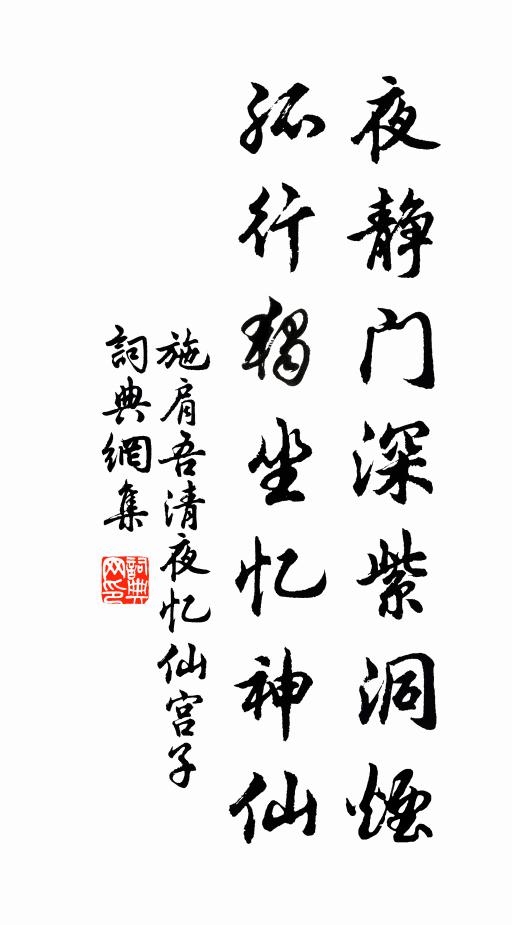 夜静门深紫洞烟
孤行独坐忆神仙
施肩吾清夜忆仙宫子
詞典網集
詞典网印